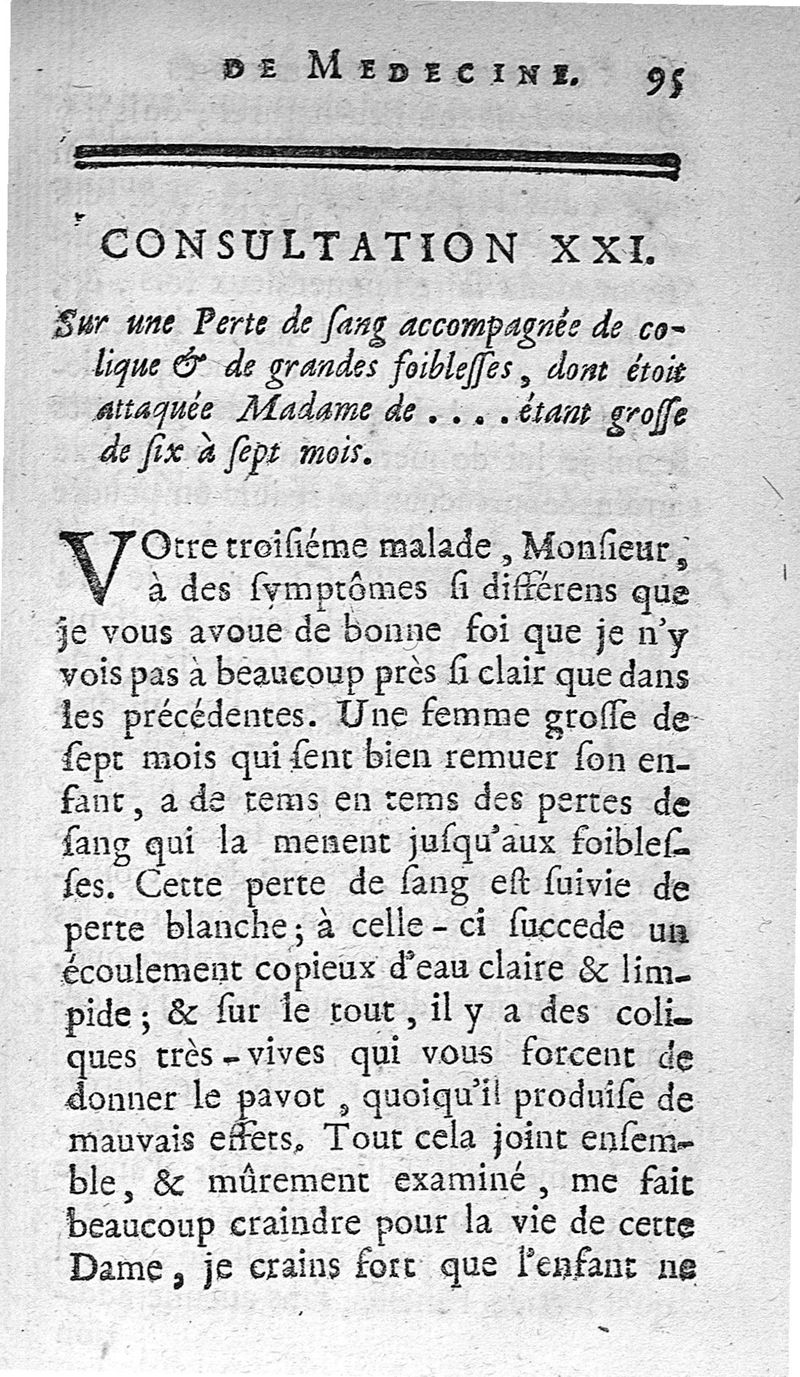 DE MEDECINE. 95
CONSULTATION XXI.
Sur une Perte de ſang accompagnée de co-
lique & de grandes foibleſſes, dont étoit
attaquée Madame de . . . . étant groſſe
de ſix à ſept mois.
VOtre troiſiéme malade, Monſieur,
à des ſymptômes ſi différens que
je vous avoue de bonne foi que je n'y
vois pas à beaucoup près ſi clair que dans
les précédentes. Une femme groſſe de
ſept mois qui ſent bien remuer ſon en-
fant, a de tems en tems des pertes de
ſang qui la menent juſqu'aux foibleſ-
ſes. Cette perte de ſang eſt ſuivie de
perte blanche; à celle-ci ſuccede un
écoulement copieux d'eau claire & lim-
pide; & ſur le tout, il y a des coli-
ques très-vives qui vous forcent de
donner le pavot, quoiqu'il produiſe de
mauvais effets. Tout cela joint enſem-
ble, & mûrement examiné, me fait
beaucoup craindre pour la vie de cette
Dame, je crains fort que l'enfant ne